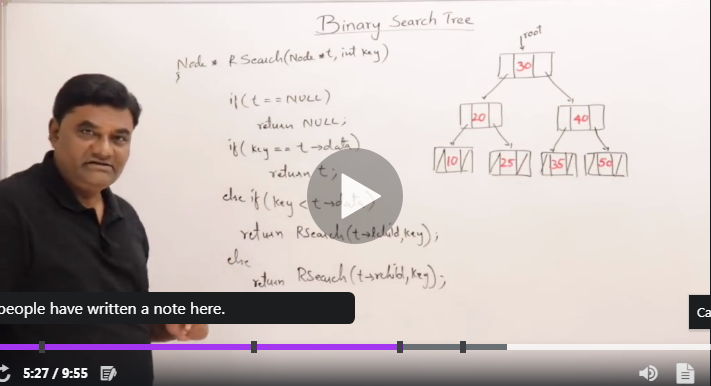 Binary Search Tree
Node * RSearch(Node *t, int key)
{
if(t==NULL)
return NULL;
if(key == t→data)
return t;
else if(key < t→data)
return RSearch(t→lchild,key);
else
return RSearch(t→rchild,key);
root
30
20
40
10
25
35
50
people have written a note here.
Ca
5:27 / 9:55